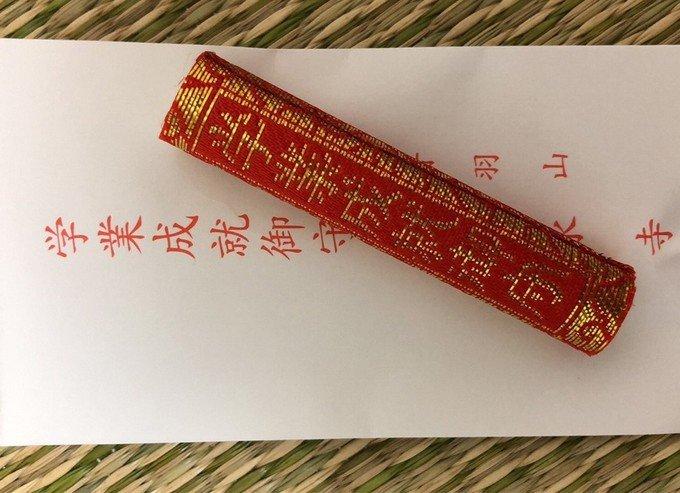 羽山
学業成就御守
水寺
学業成就御守